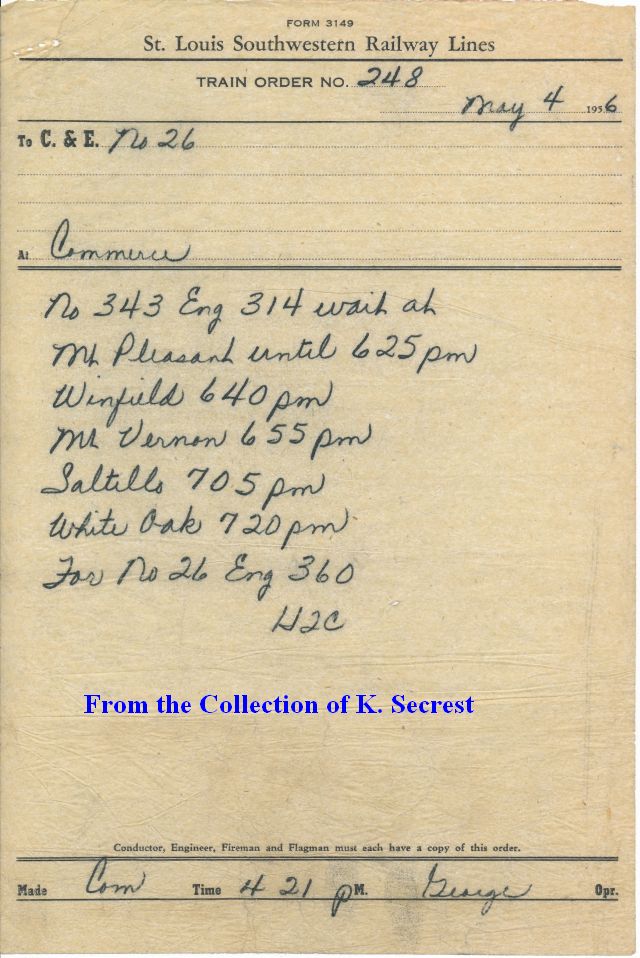 FORM 3149
St. Louis Southwestern Railway Lines
TRAIN ORDER NO. 248
May 4 1956
To C. & E. No 26
At Commerce
No 343 Eng 314 wait at
Mt Pleasant until 625 pm
Winfield 640 pm
Mt Vernon 655 pm
Saltillo 705 pm
White Oak 720 pm
For No 26 Eng 360
From the Collection of K. Secrest
Conductor, Engineer, Fireman and Flagman must each have a copy of this order.
Made Com Time 4 21 PM. George Opr.